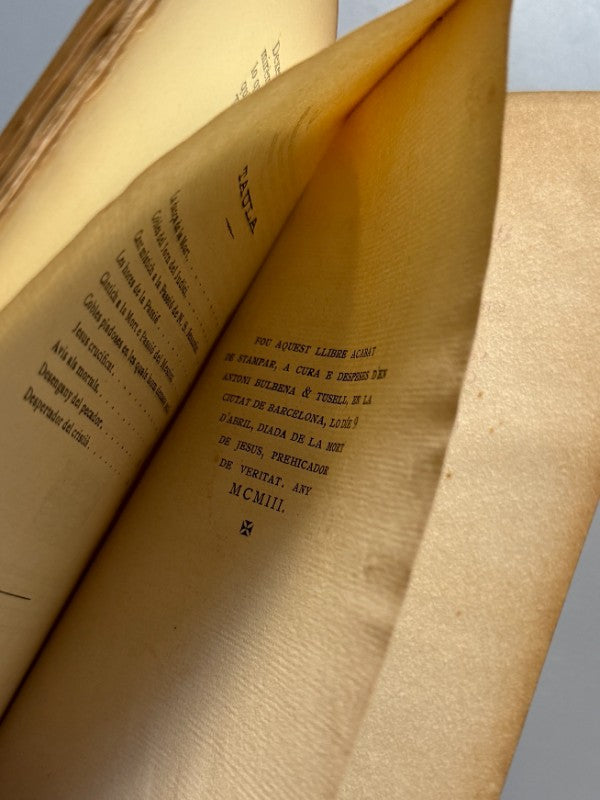 TAULA
Cobles del Jorn del Judici
Cant místich a la Passió de N. S.
Les hores de la Passió
Cántich a la Mort e Passió del
Cobles piadoses en les quals
Jesus crucificat
Avis als mortals
Desengany del pecador
Despertador del cristiá
FOU AQUEST LLIBRE ACABAT
DE STAMPAR, A CURA E DESPESES D'EN
ANTONI BULBENA & TUSELL, EN LA
CIUTAT DE BARCELONA, LO DIE 9
D'ABRIL, DIADA DE LA MORT
DE JESUS, PREHICADOR
DE VERITAT. ANY
MCMIII.